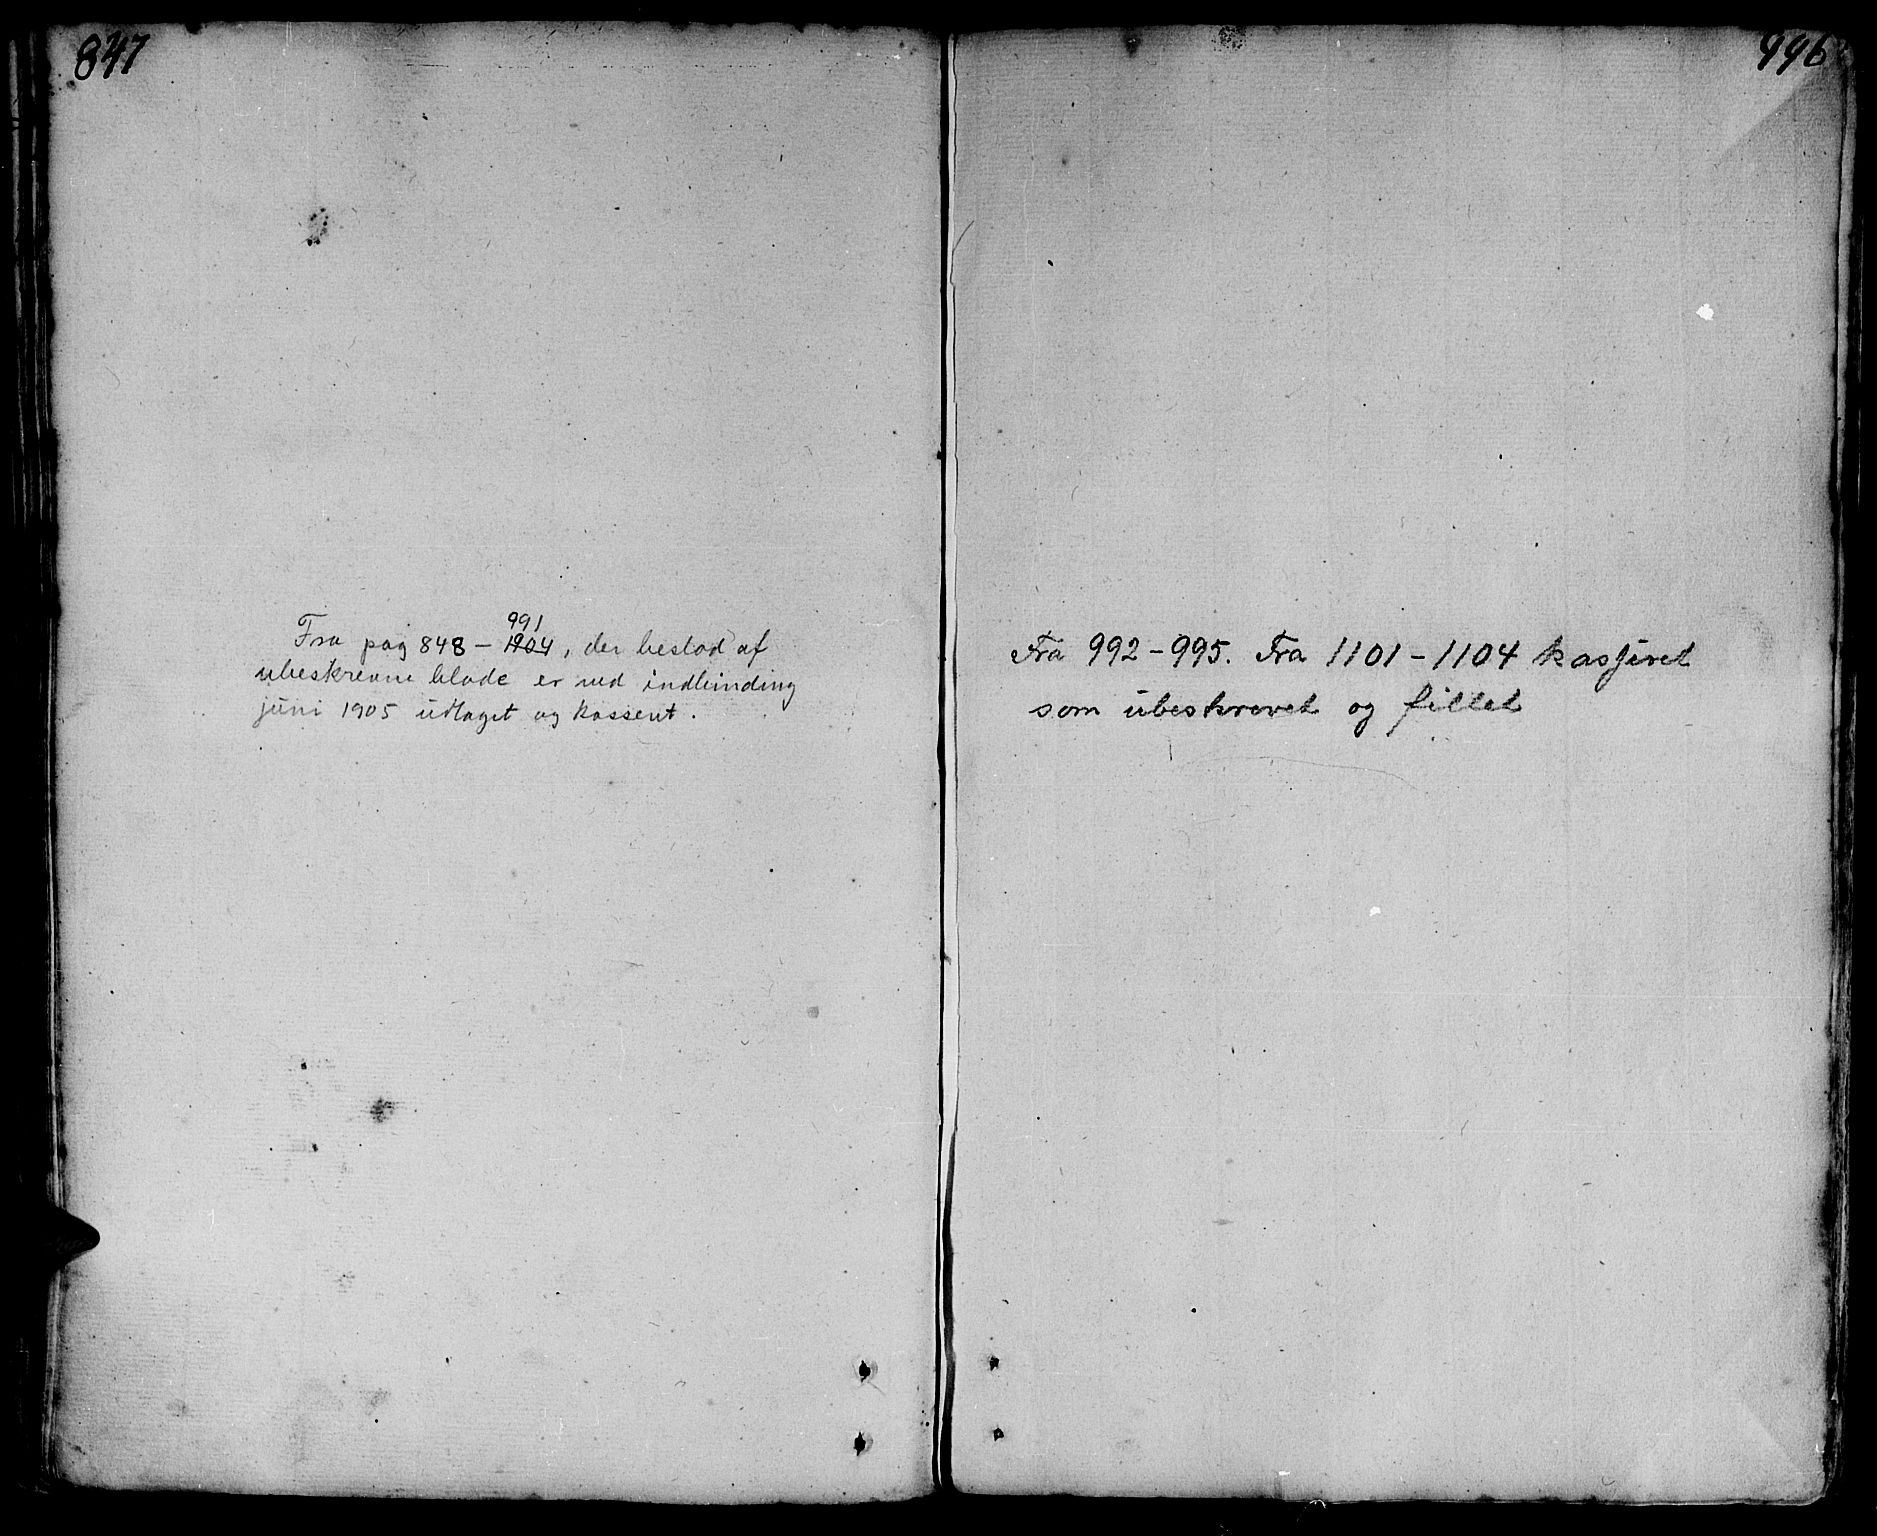 847
991
Fra pag 848 – 1904, der bestod af
ubeskrevne blade er ved indbinding
juni 1905 udtaget og kassert.
996
Fra 992 – 995. Fra 1101 – 1104 kasjeret
som ubeskrevet og fillet